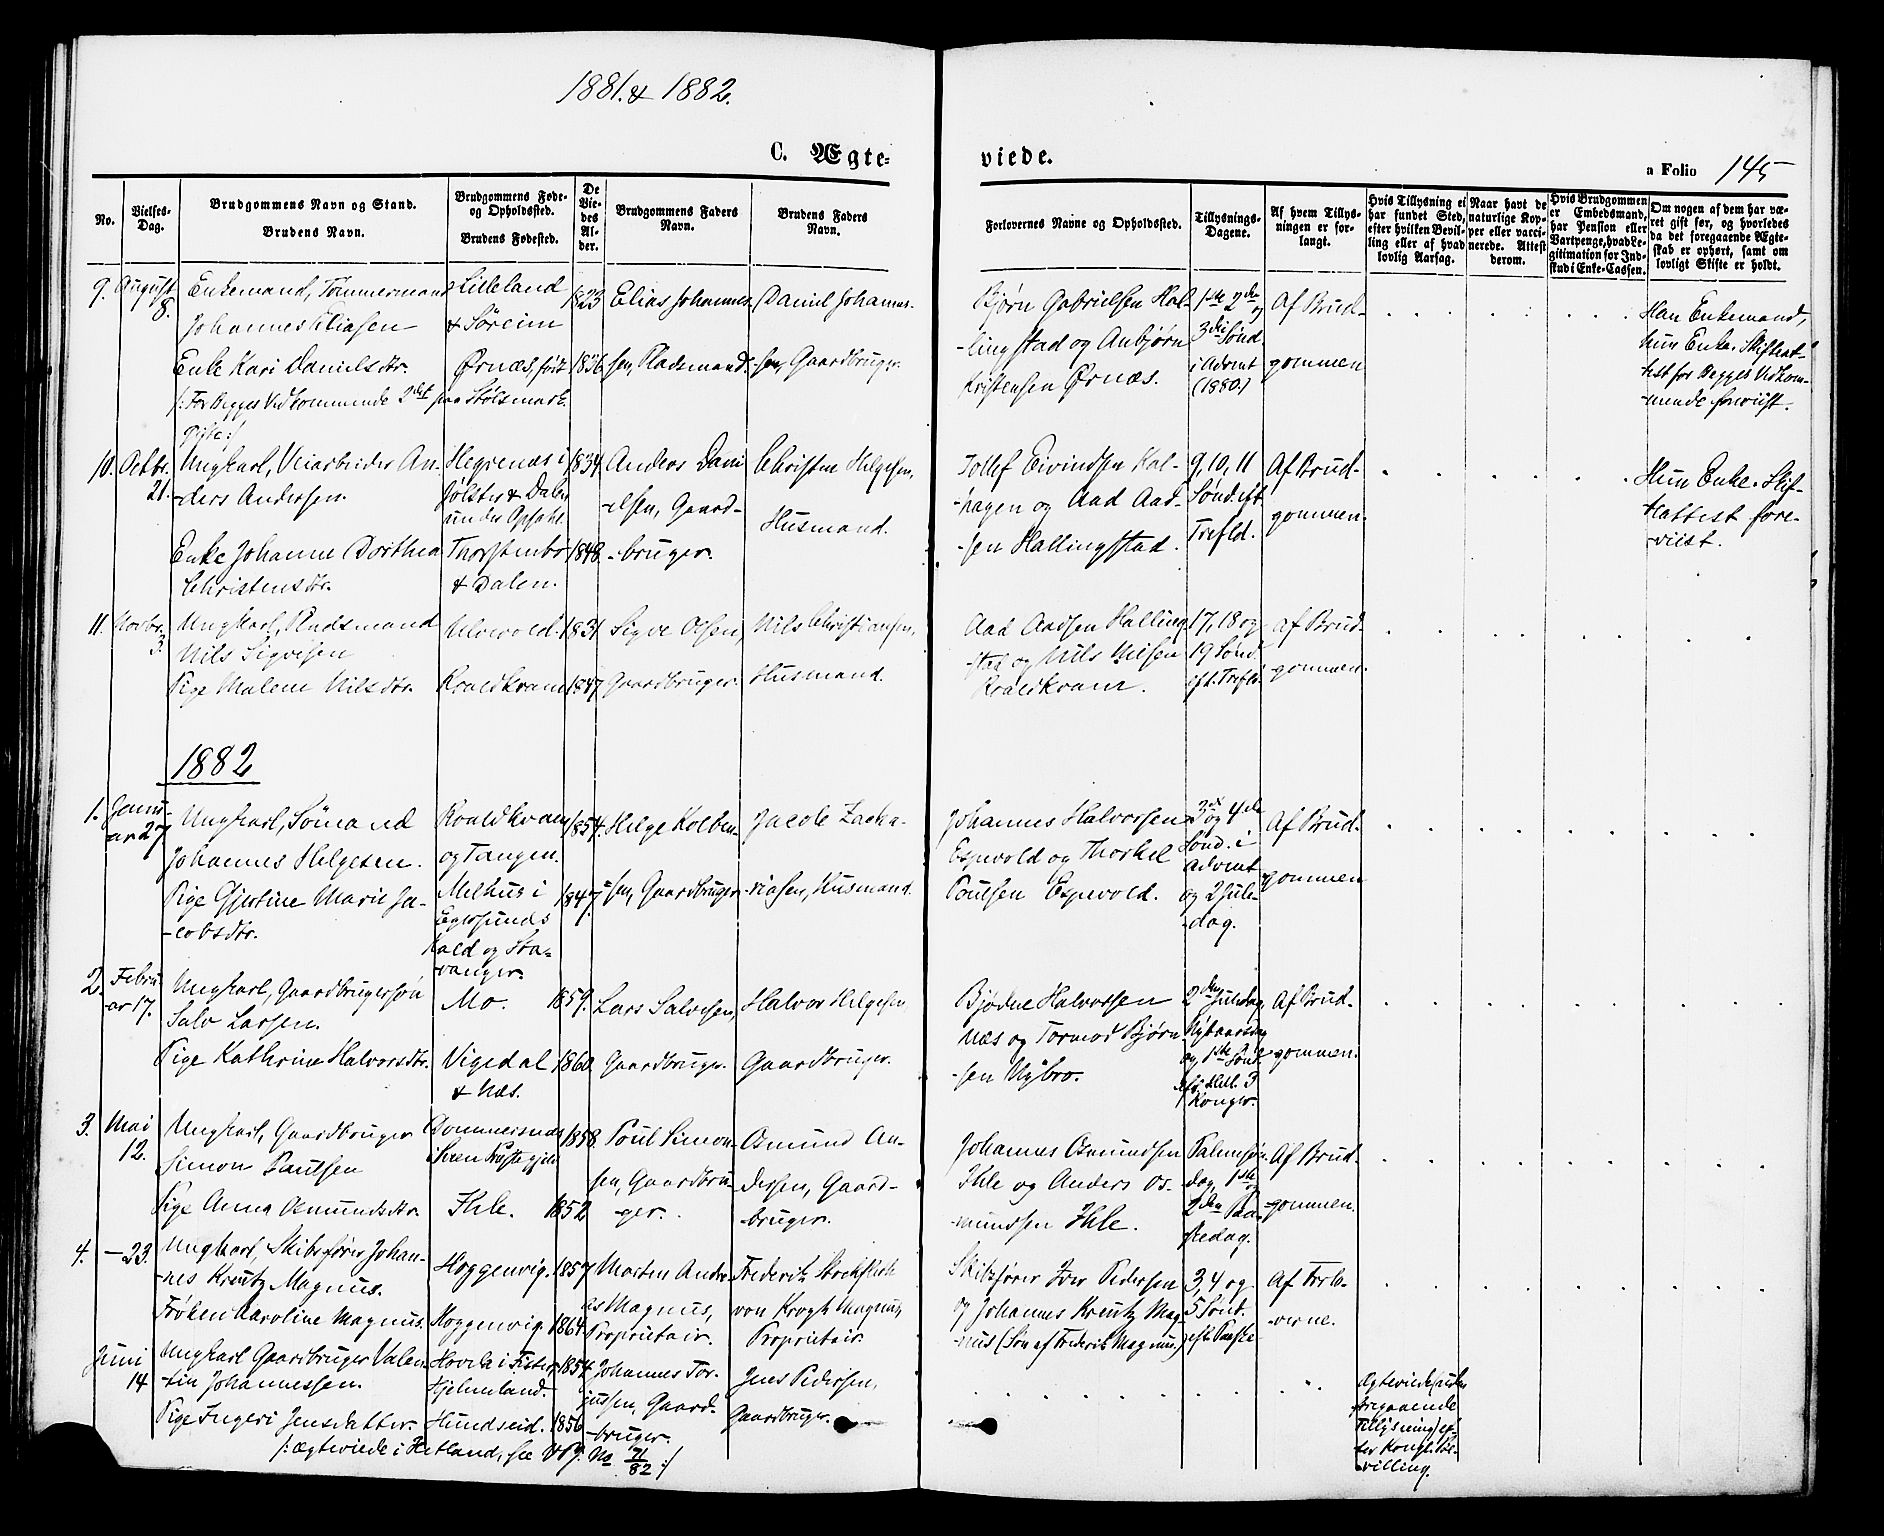 1881. & 1882.
C. Ægte-
viede.
a Folio 145
No.
Vielses-
Dag.
Brudgommens Navn og Stand.
Brudens Navn.
Brudgommens Føde-
og Opholdssted.
Brudens Fødested.
De
Vie-
des
Al-
der.
Brudgommens Faders
Navn.
Brudens Faders
Navn.
Forlovernes Navne og Opholdssted.
Tillysnings-
Dagene.
Af hvem Tillys-
ningen er for-
langt.
Hvis Tillysning ei
har fundet Sted,
efter hvilken Bevil-
ling eller af hvad
lovlig Aarsag.
Naar havt de
naturlige Kop-
per eller vacci-
nerede. Attest
derom.
Hvis Brudgommen
er Embedsmand,
har Pension eller
Vartpenge, hvad Le-
gitimation for Ind-
skud i Enke-Cassen.
Om nogen af dem har væ-
ret gift før, og hvorledes
da det foregaaende Ægte-
skab er ophørt, samt om
lovligt Skifte er holdt.
9.
August
8.
Enkemand, Tømmermand
Johannes Eliasen
Enke Kari Danielsdtr.
/: For Begges Vedkommende 2det
Gifte :/
Lilleland
& Søreim
Ørnæs, født
paa Stølsmark.
1823
1836
Elias Johannes-
sen, Pladsmand.
Daniel Johannes-
sen, Gaardbruger.
Bjørn Gabrielsen Hal-
-lingstad og Anbjørn
Kristensen Ørnæs.
1ste 2den og
3die Sønd.
i Advent
(1880.)
Af Brud-
gommen
Han Enkemand,
hun Enke. Skifteat-
test for Begges Vedkom-
-mende foreviist.
10.
Octbr.
21.
Ungkarl, Veiarbeider An-
-ders Andersen.
Enke Johanne Dorthea
Christensdtr.
Hegrenæs i
Jølster & Dalen
under Opsahl.
Thorstenbø
& Dalen.
1834
1848.
Anders Dani
-elsen, Gaard-
-bruger.
Christen Helgesen,
Husmand.
Tollef Eivindsen Hal-
-hagen og Aad Aad-
-sen Hallingstad.
9, 10, 11
Sønd. eft.
Trefld.
Af Brud-
gommen.
Hun Enke. Skif-
teattest fore-
-viist.
11.
Novbr.
3.
Ungkarl, Pladsmand
Nils Sigvesen
Pige Malene Nilsdtr.
Ulvevold.
Roaldkvam
1831
1847
Sigve Olsen,
Gaardbruger.
Nils Christiansen,
Husmand.
Aad Aadsen Halling-
stad og Nils Nilsen
Roaldkvam.
17, 18 og
19 Sønd.
eft. Trefld.
Af Brud-
gommen.
1882
1.
Janu-
ar 27
Ungkarl, Sømand
Johannes Helgesen.
Pige Gjertine Marie Ja-
-cobsdtr.
Roaldkvam
og Tangen.
Melhus i
Egersunds
Kald og Sta-
vanger.
1854.
1847.
Helge Kolben-
sen, Gaardbruger
Jacob Zacha-
-riasen, Husmand.
Johannes Halvorsen
Espevold og Thorkel
Poulsen Espevold.
3die og 4de
Sønd. i
Advent
og 2 Jule-
dag.
Af Brud-
gommen
2.
Febru-
ar 17.
Ungkarl, Gaardbrugersøn
Salv Larsen.
Pige Kathrine Halvorsdtr.
Mo.
Vigedal
& Næs.
1859.
1860.
Lars Salvesen,
Gaardbruger.
Halvor Helgesen,
Gaardbruger.
Bjødne Halvorsen
Næs og Tormod Bjørn-
-sen Nybro.
2den Juledag,
Nytaarsdag
og 1ste Sønd.
eft. Hell. 3
Konger.
Af Brud-
gommen.
3.
Mai
12.
Ungkarl, Gaardbruger
Simon Paulsen
Pige Anna Osmundsdtr.
Dommersnæs
Ihle.
1858.
1852
Poul Simon-
sen, Gaardbru-
-ger.
Osmund An-
dersen, Gaard-
-bruger.
Johannes Osmundsen
Ihle og Anders Os-
-mundsen Ihle.
Palmesøn-
dag, 1ste og
2den Paa-
skedag.
Af Brud-
gommen.
4.
- 23.
Ungkarl, Skibsfører Johan-
-nes Kreutz Magnus.
Frøken Karoline Magnus.
Hoggenvig.
Hoggenvig.
1857
1864.
Morten Andre-
as Magnus,
Proprietair.
Frederik Stockfleth
von Krogh Magnus,
Proprietair.
Skibsfører Iver Pedersen
og Johannes Kreutz Mag-
nus (Søn af Frederik Magnus.)
3, 4 og
5 Sønd.
eft. Paaske
Af Forlo-
verne.
Juni
14
Ungkarl Gaardbruger Valen-
-tin Johannessen.
Pige Ingeri Jensdatter.
/: ægteviede i Hetland, see Vdg. No 71/82 :/
Hovda i Fister,
Hjelmeland.
Hundseid.
1854
1856
Johannes Tor-
jussen, Gaard-
bruger.
Jens Pedersen,
Gaardbruger.
Ægteviede (uden
foregaaende
Tillysning) ef-
ter Kongl. Be-
villing.